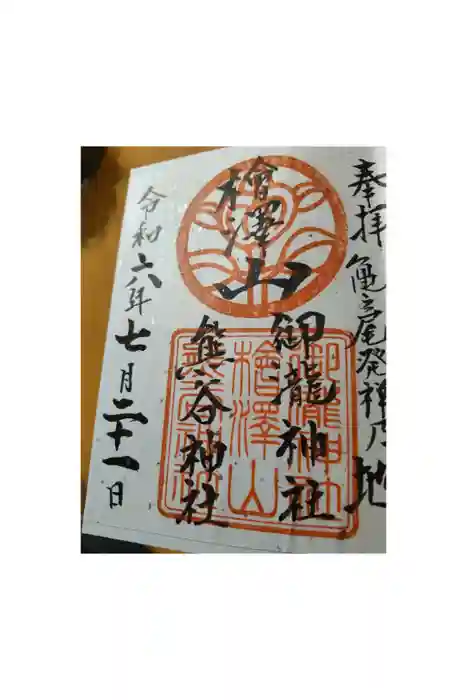 奉拝 亀之尾発禅乃地
檜澤山
御瀧神社
熊谷神社
令和六年七月二十一日
御瀧神社
檜澤山
熊谷神社